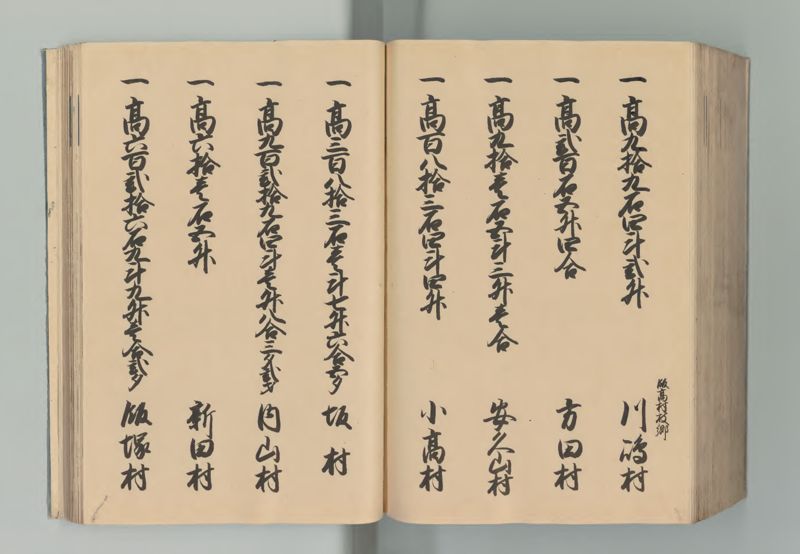 一高九拾九石四斗弐升
飯高村枝郷
川嶋村
一高弐百石五升四合
方田村
一高九拾壱石五斗三升壱合
安久山村
一高百八拾三石四斗四升
小高村
一高三百八拾三石壱斗七升六合五夕
坂村
一高九百弐拾九石四斗壱升八合三夕弐才
内山村
一高六拾壱石五升
新田村
一高六百弐拾六石九斗九升壱合弐夕
飯塚村